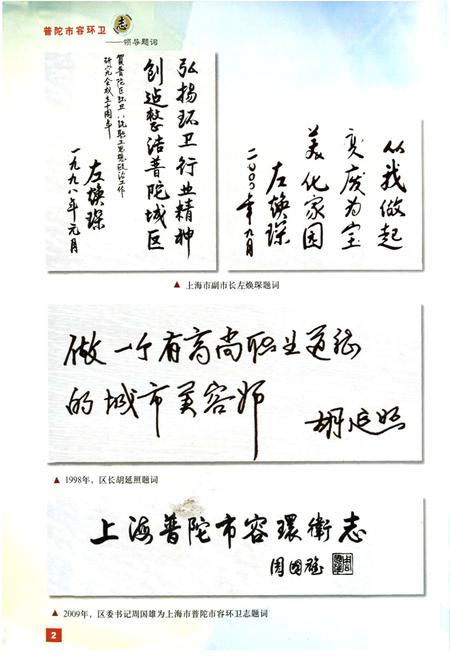 普陀市容环卫志
——领导题词
弘扬环卫行业精神
创造整洁普陀城区
贺普陀区环卫系统职工思想政治工作
研究会成立十周年
左焕琛
一九九八年元月
从我做起
变废为宝
美化家园
左焕琛
二〇〇〇年九月
▲ 上海市副市长左焕琛题词
做一个有高尚职业道德
的城市美容师
胡延照
▲ 1998年，区长胡延照题词
上海普陀市容環衛志
周国雄
▲ 2009年，区委书记周国雄为上海市普陀市容环卫志题词
2